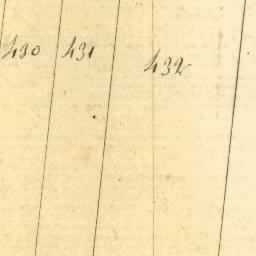 430 431 432